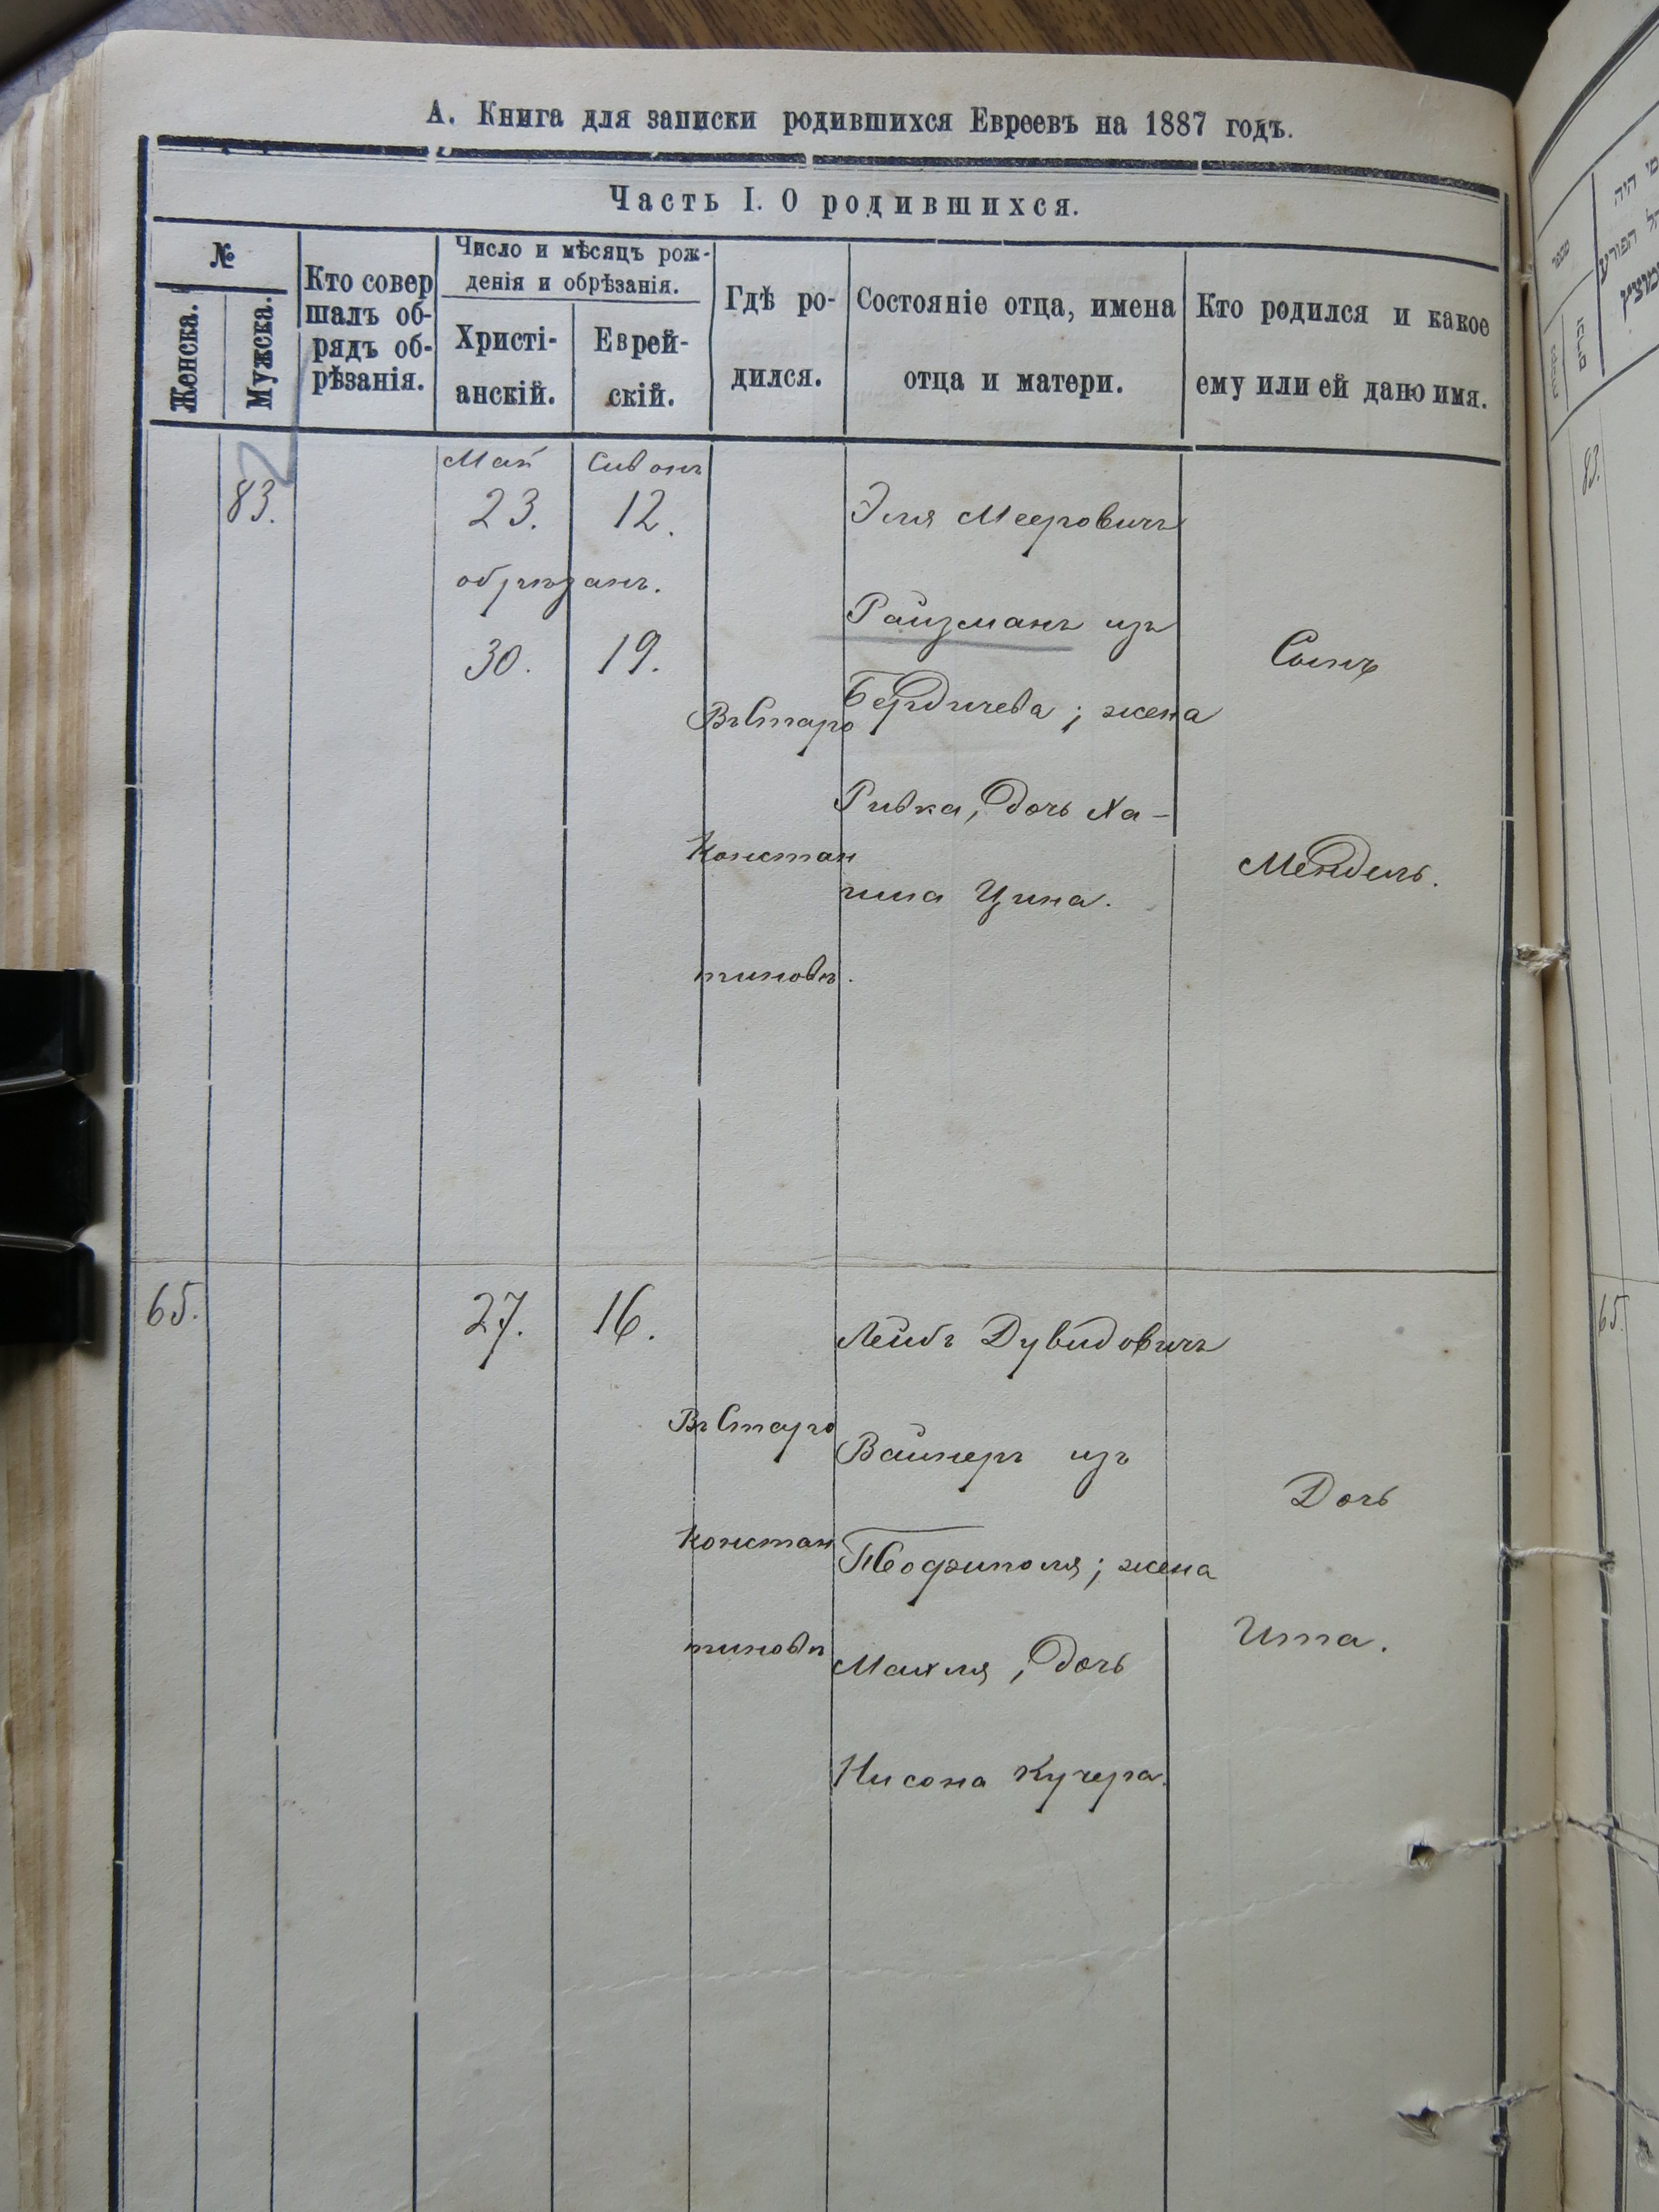 А. Книга для записки родившихся Евреевъ на 1887 годъ.
Часть I. О родившихся.
№
Женска.
Мужска.
Кто совер
шалъ об-
рядъ об-
рѣзанія.
Число и мѣсяцъ рож-
денія и обрѣзанія.
Христі-
анскій.
Еврей-
скій.
Гдѣ ро-
дился.
Состояніе отца, имена
отца и матери.
Кто родился и какое
ему или ей дано имя.
83.
Май
23.
обрѣзанъ.
30.
Сивонъ
12.
19.
Въ Старо
Констан
тиновѣ.
Эля Мееровичъ
Райзманъ изъ
Бердичева; жена
Ривка, дочь Ха-
има Цина.
Сынъ
Мендель.
65.
27.
16.
Въ Старо
Констан
тиновѣ
Лейбъ Дувидовичъ
Вайнеръ изъ
Теофиполя; жена
Махля, дочь
Нисона Кучера.
Дочь
Ита.
מי היה
83.
65.